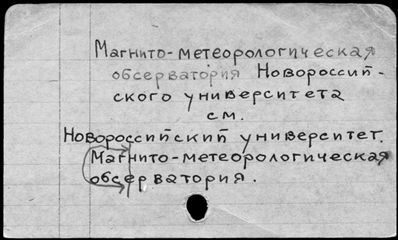 Магнито-метеорологическая
обсерватория Новороссий-
ского университета
см.
Новороссийский университет.
Магнито-метеорологическая
обсерватория.